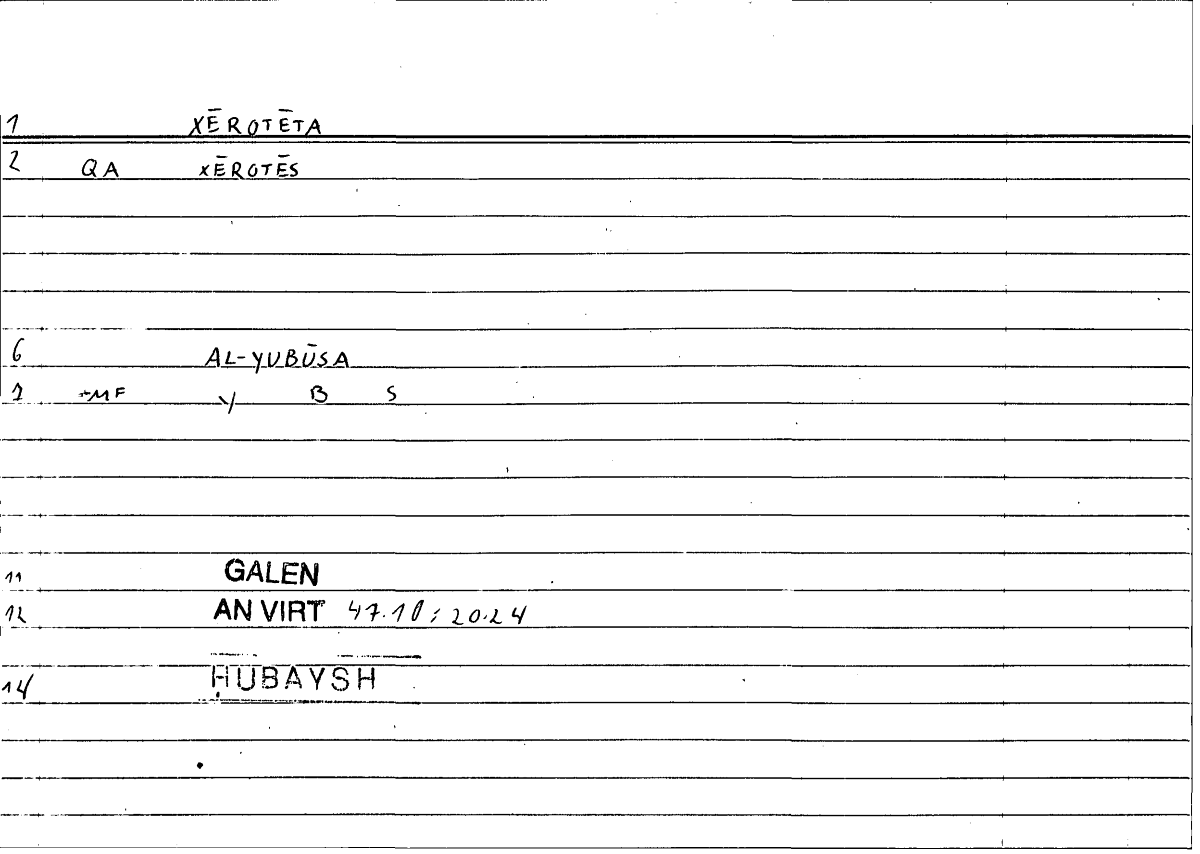 1 XĒROTĒTA
2 QA XĒROTĒS
6 AL-YUBŪSA
MF Y B S
11 GALEN
12 AN VIRT 47.10; 20.24
14 ḤUBAYSH